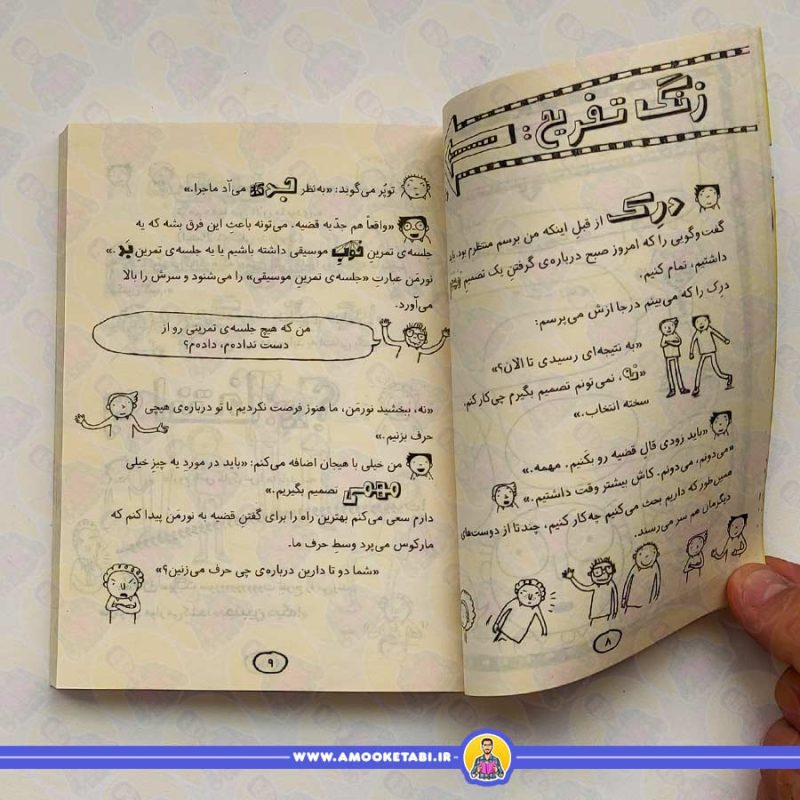 زنگ تفریح:
درِک از قبلِ اینکه من برسم منتظرم بود. باید
گفت‌وگویی را که امروز صبح درباره‌ی گرفتنِ یک تصمیمِ
داشتیم، تمام کنیم.
درِک را که می‌بینم درجا ازش می‌پرسم:
«به نتیجه‌ای رسیدی تا الان؟»
«نه، نمی‌تونم تصمیم بگیرم چی‌کار کنم.
سخته انتخاب.»
«باید زودی قالِ قضیه رو بکَنیم. مهمه.»
«می‌دونم، می‌دونم. کاش بیشتر وقت داشتیم.»
همین‌طور که داریم بحث می‌کنیم چه‌کار کنیم، چندتا از دوست‌های
دیگرمان هم سر می‌رسند.
۸
توپُر می‌گوید: «به‌نظر جدی می‌آد ماجرا.»
«واقعاً هم جدّیه قضیه. می‌تونه باعثِ این فرق بشه که یه
جلسه‌ی تمرین خوبِ موسیقی داشته باشیم یا یه جلسه‌ی تمرینِ بَد.»
نورمَن عبارتِ «جلسه‌ی تمرینِ موسیقی» را می‌شنود و سرش را بالا
می‌آورد.
من که هیچ جلسه‌ی تمرینی رو از
دست نداده‌م، داده‌م؟
«نه، ببخشید نورمَن، ما هنوز فرصت نکردیم با تو درباره‌ی هیچی
حرف بزنیم.»
من خیلی با هیجان اضافه می‌کنم: «باید در مورد یه چیز خیلی
مهمی تصمیم بگیریم.»
دارم سعی می‌کنم بهترین راه را برای گفتنِ قضیه به نورمَن پیدا کنم که
مارکوس می‌پرد وسطِ حرف ما.
«شما دو تا دارین درباره‌ی چی حرف می‌زنین؟»
۹
WWW.AMOOKETABI.IR